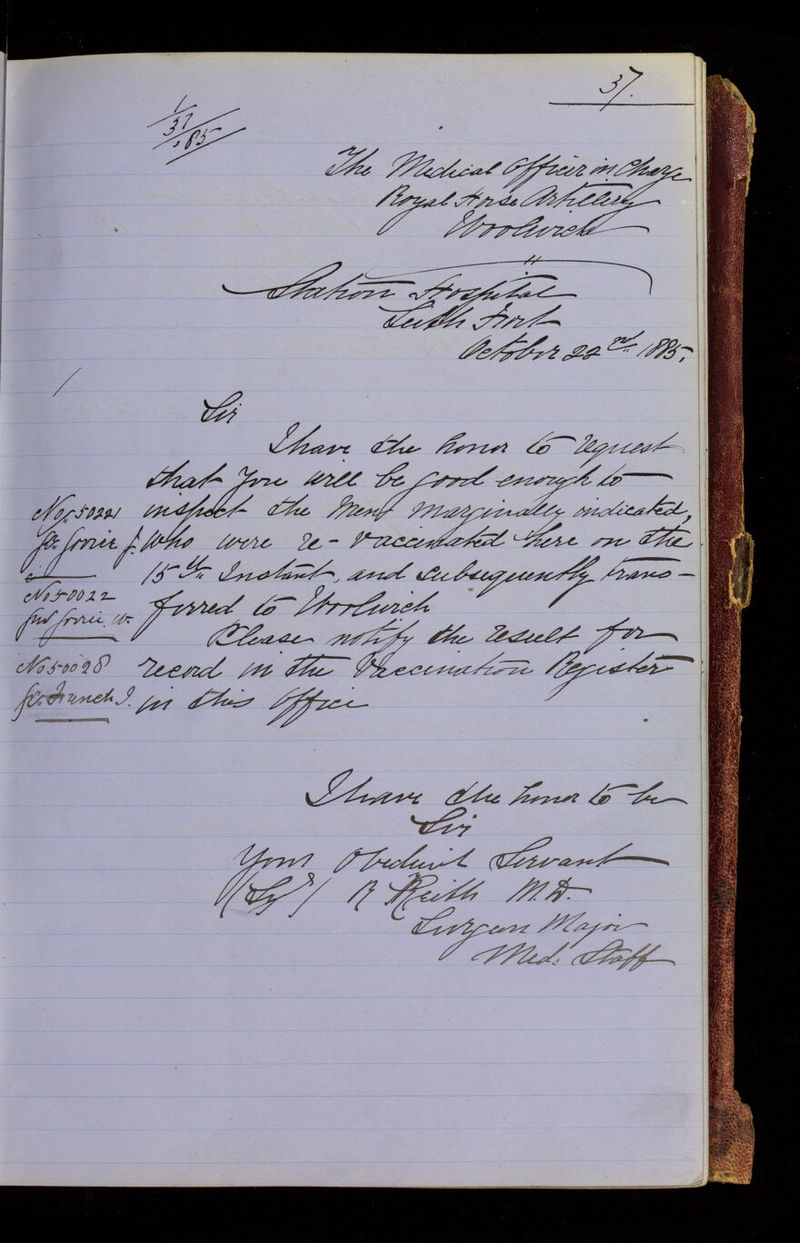 37.
1/37/85
The Medical Officer in Charge
Royal Horse Artillery
Woolwich
Station Hospital
Leith Fort
October 22nd 1885.
Sir
I have the honor to request
that you will be good enough to
No 50221 inspect the Men marginally indicated,
Gr. Gorrie J. who were re-vaccinated here on the
15th Instant, and subsequently trans-
No 50022 ferred to Woolwich
Gorrie. W. Please notify the result for
No 50028 record in the Vaccination Register
French J. in this Office
I have the honor to be
Sir
Your Obedient Servant
(Sgd) R Keith M.D.
Surgeon Major
Med: Staff